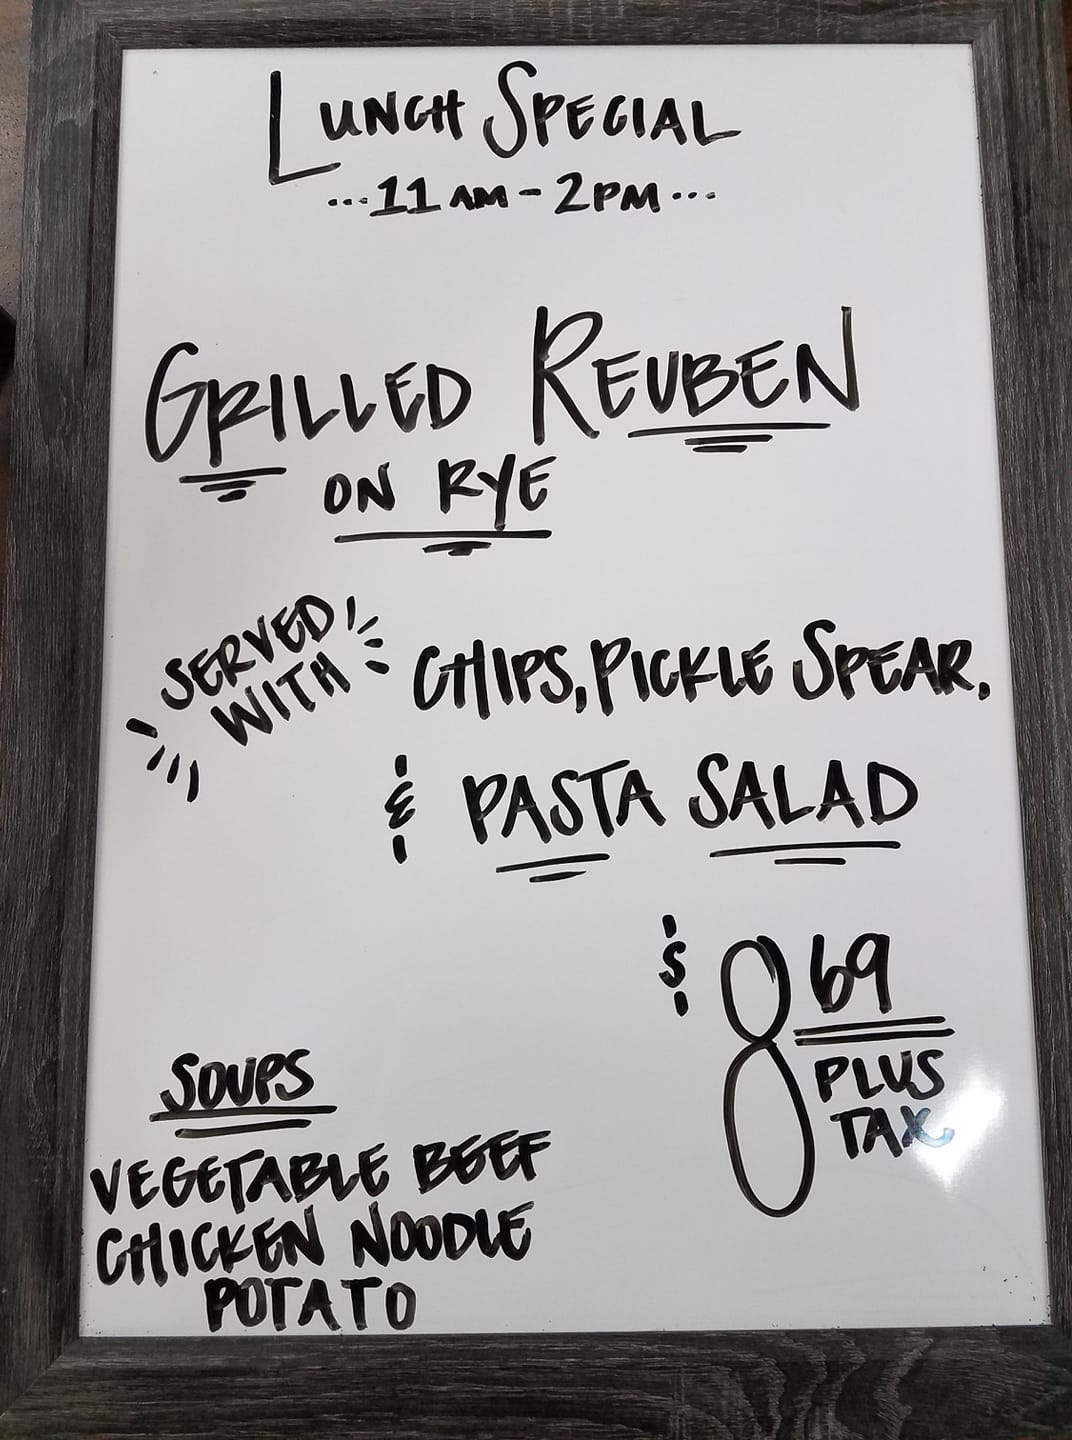 LUNCH SPECIAL
...11 AM - 2 PM...
GRILLED REUBEN
ON RYE
SERVED
WITH
CHIPS, PICKLE SPEAR,
& PASTA SALAD
$8 69
PLUS
TAX
SOUPS
VEGETABLE BEEF
CHICKEN NOODLE
POTATO